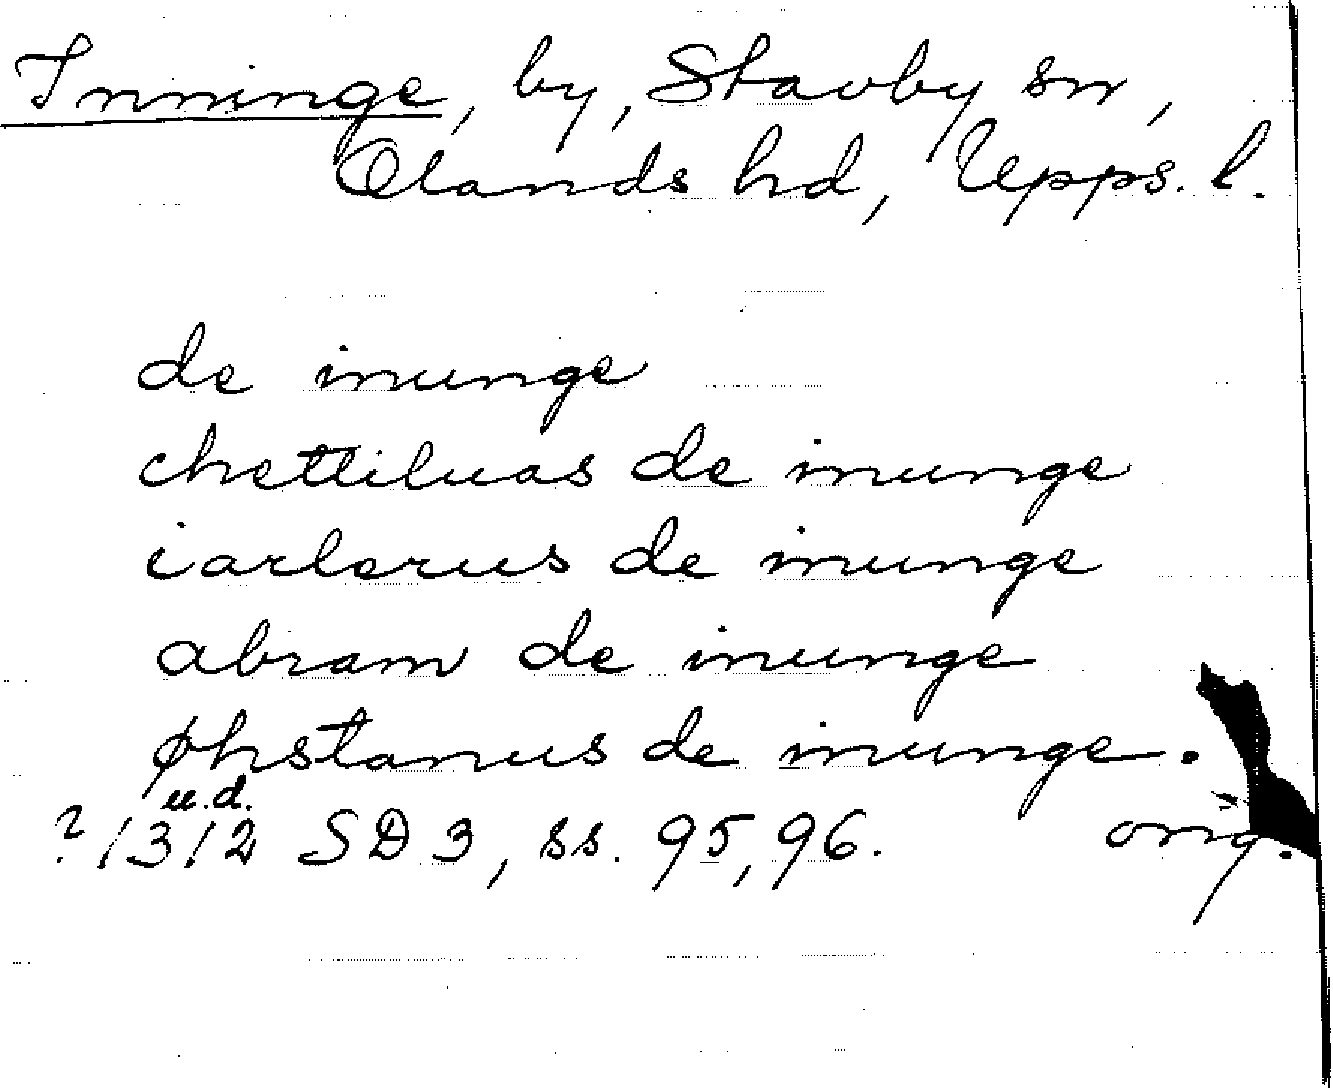 Inninge, by, Stavby sn,
Olands hd, Upps. l.
de inunge
chettiluas de inunge
iarlerus de inunge
abram de inunge
øhstanus de inunge.
u.d.
? 1312 SD 3, ss. 95, 96. orig.